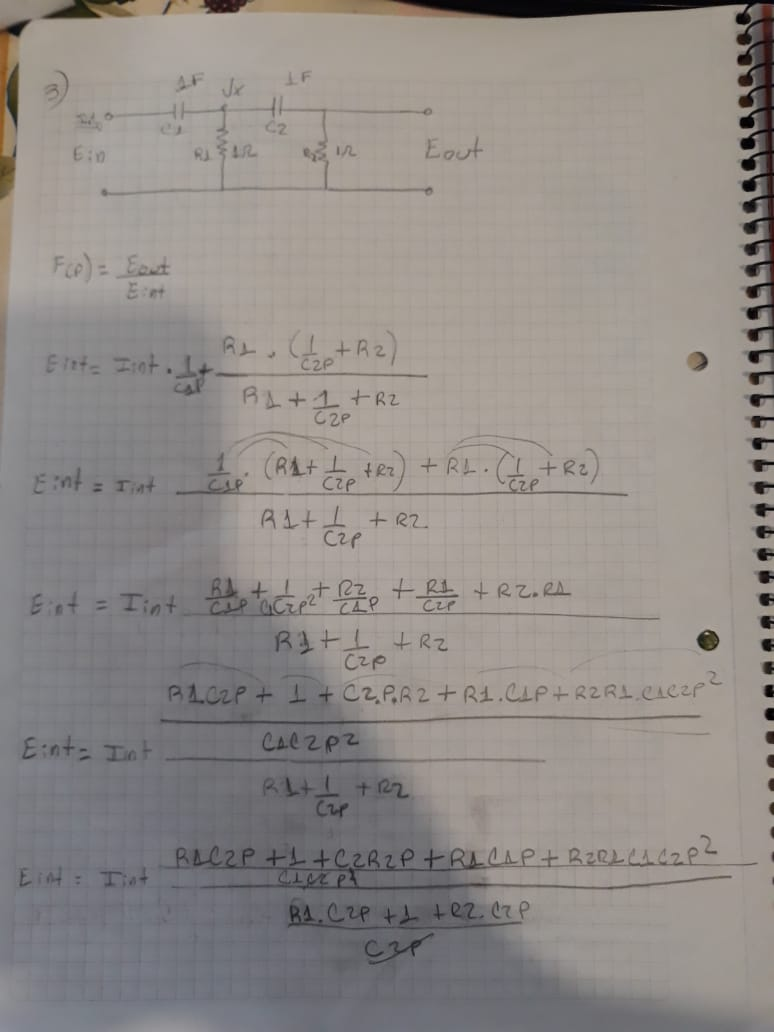 3)
1F Vx 1F
C1 C2
Ein R1 1Ω 1Ω Eout
F(p) = Eout / Eint
Eint = Iint . 1/C1P + R1 . (1/C2P + R2) / R1 + 1/C2P + R2
Eint = Iint 1/C1P . (R1 + 1/C2P + R2) + R1 . (1/C2P + R2) / R1 + 1/C2P + R2
Eint = Iint R1/C1P + 1/C1C2P² + R2/C1P + R1/C2P + R2.R1 / R1 + 1/C2P + R2
R1.C2P + 1 + C2.P.R2 + R1.C1P + R2R1.C1C2P²
Eint = Iint C1C2P2
R1 + 1/C2P + R2
R1C2P + 1 + C2R2P + R1C1P + R2R1C1C2P²
Eint = Iint C1C2P²
R1.C2P + 1 + R2.C2P
C2P